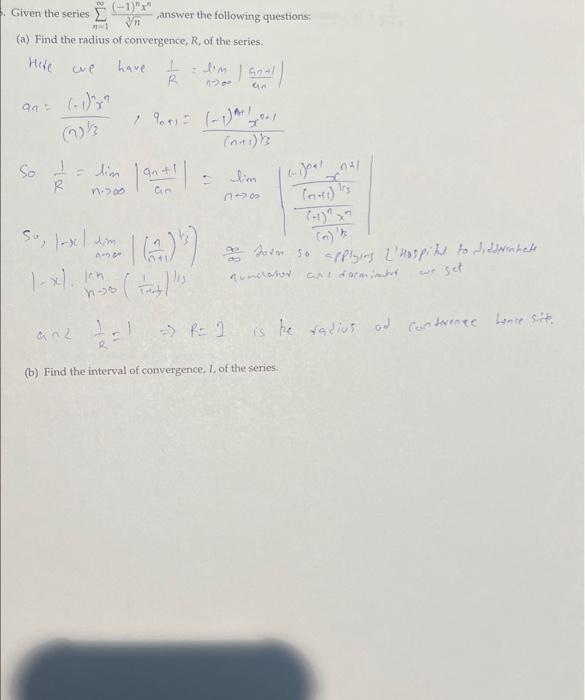 5. Given the series \sum_{n=1}^{\infty} \frac{(-1)^n x^n}{\sqrt[3]{n}} ,answer the following questions:
(a) Find the radius of convergence, R, of the series.
Here we have \frac{1}{R} = \lim_{n\to\infty} \left| \frac{a_{n+1}}{a_n} \right|
a_n = \frac{(-1)^n x^n}{(n)^{1/3}} , a_{n+1} = \frac{(-1)^{n+1} x^{n+1}}{(n+1)^{1/3}}
So \frac{1}{R} = \lim_{n\to\infty} \left| \frac{a_{n+1}}{a_n} \right| = \lim_{n\to\infty} \left| \frac{\frac{(-1)^{n+1} x^{n+1}}{(n+1)^{1/3}}}{\frac{(-1)^n x^n}{(n)^{1/3}}} \right|
So, |-x| \lim_{n\to\infty} \left| \left( \frac{n}{n+1} \right)^{1/3} \right) \frac{\infty}{\infty} form so applying L'Hospital to
|-x| . \lim_{n\to\infty} we get
and \frac{1}{R} = 1 \Rightarrow R = 1 is the radius of hence
(b) Find the interval of convergence, I, of the series.